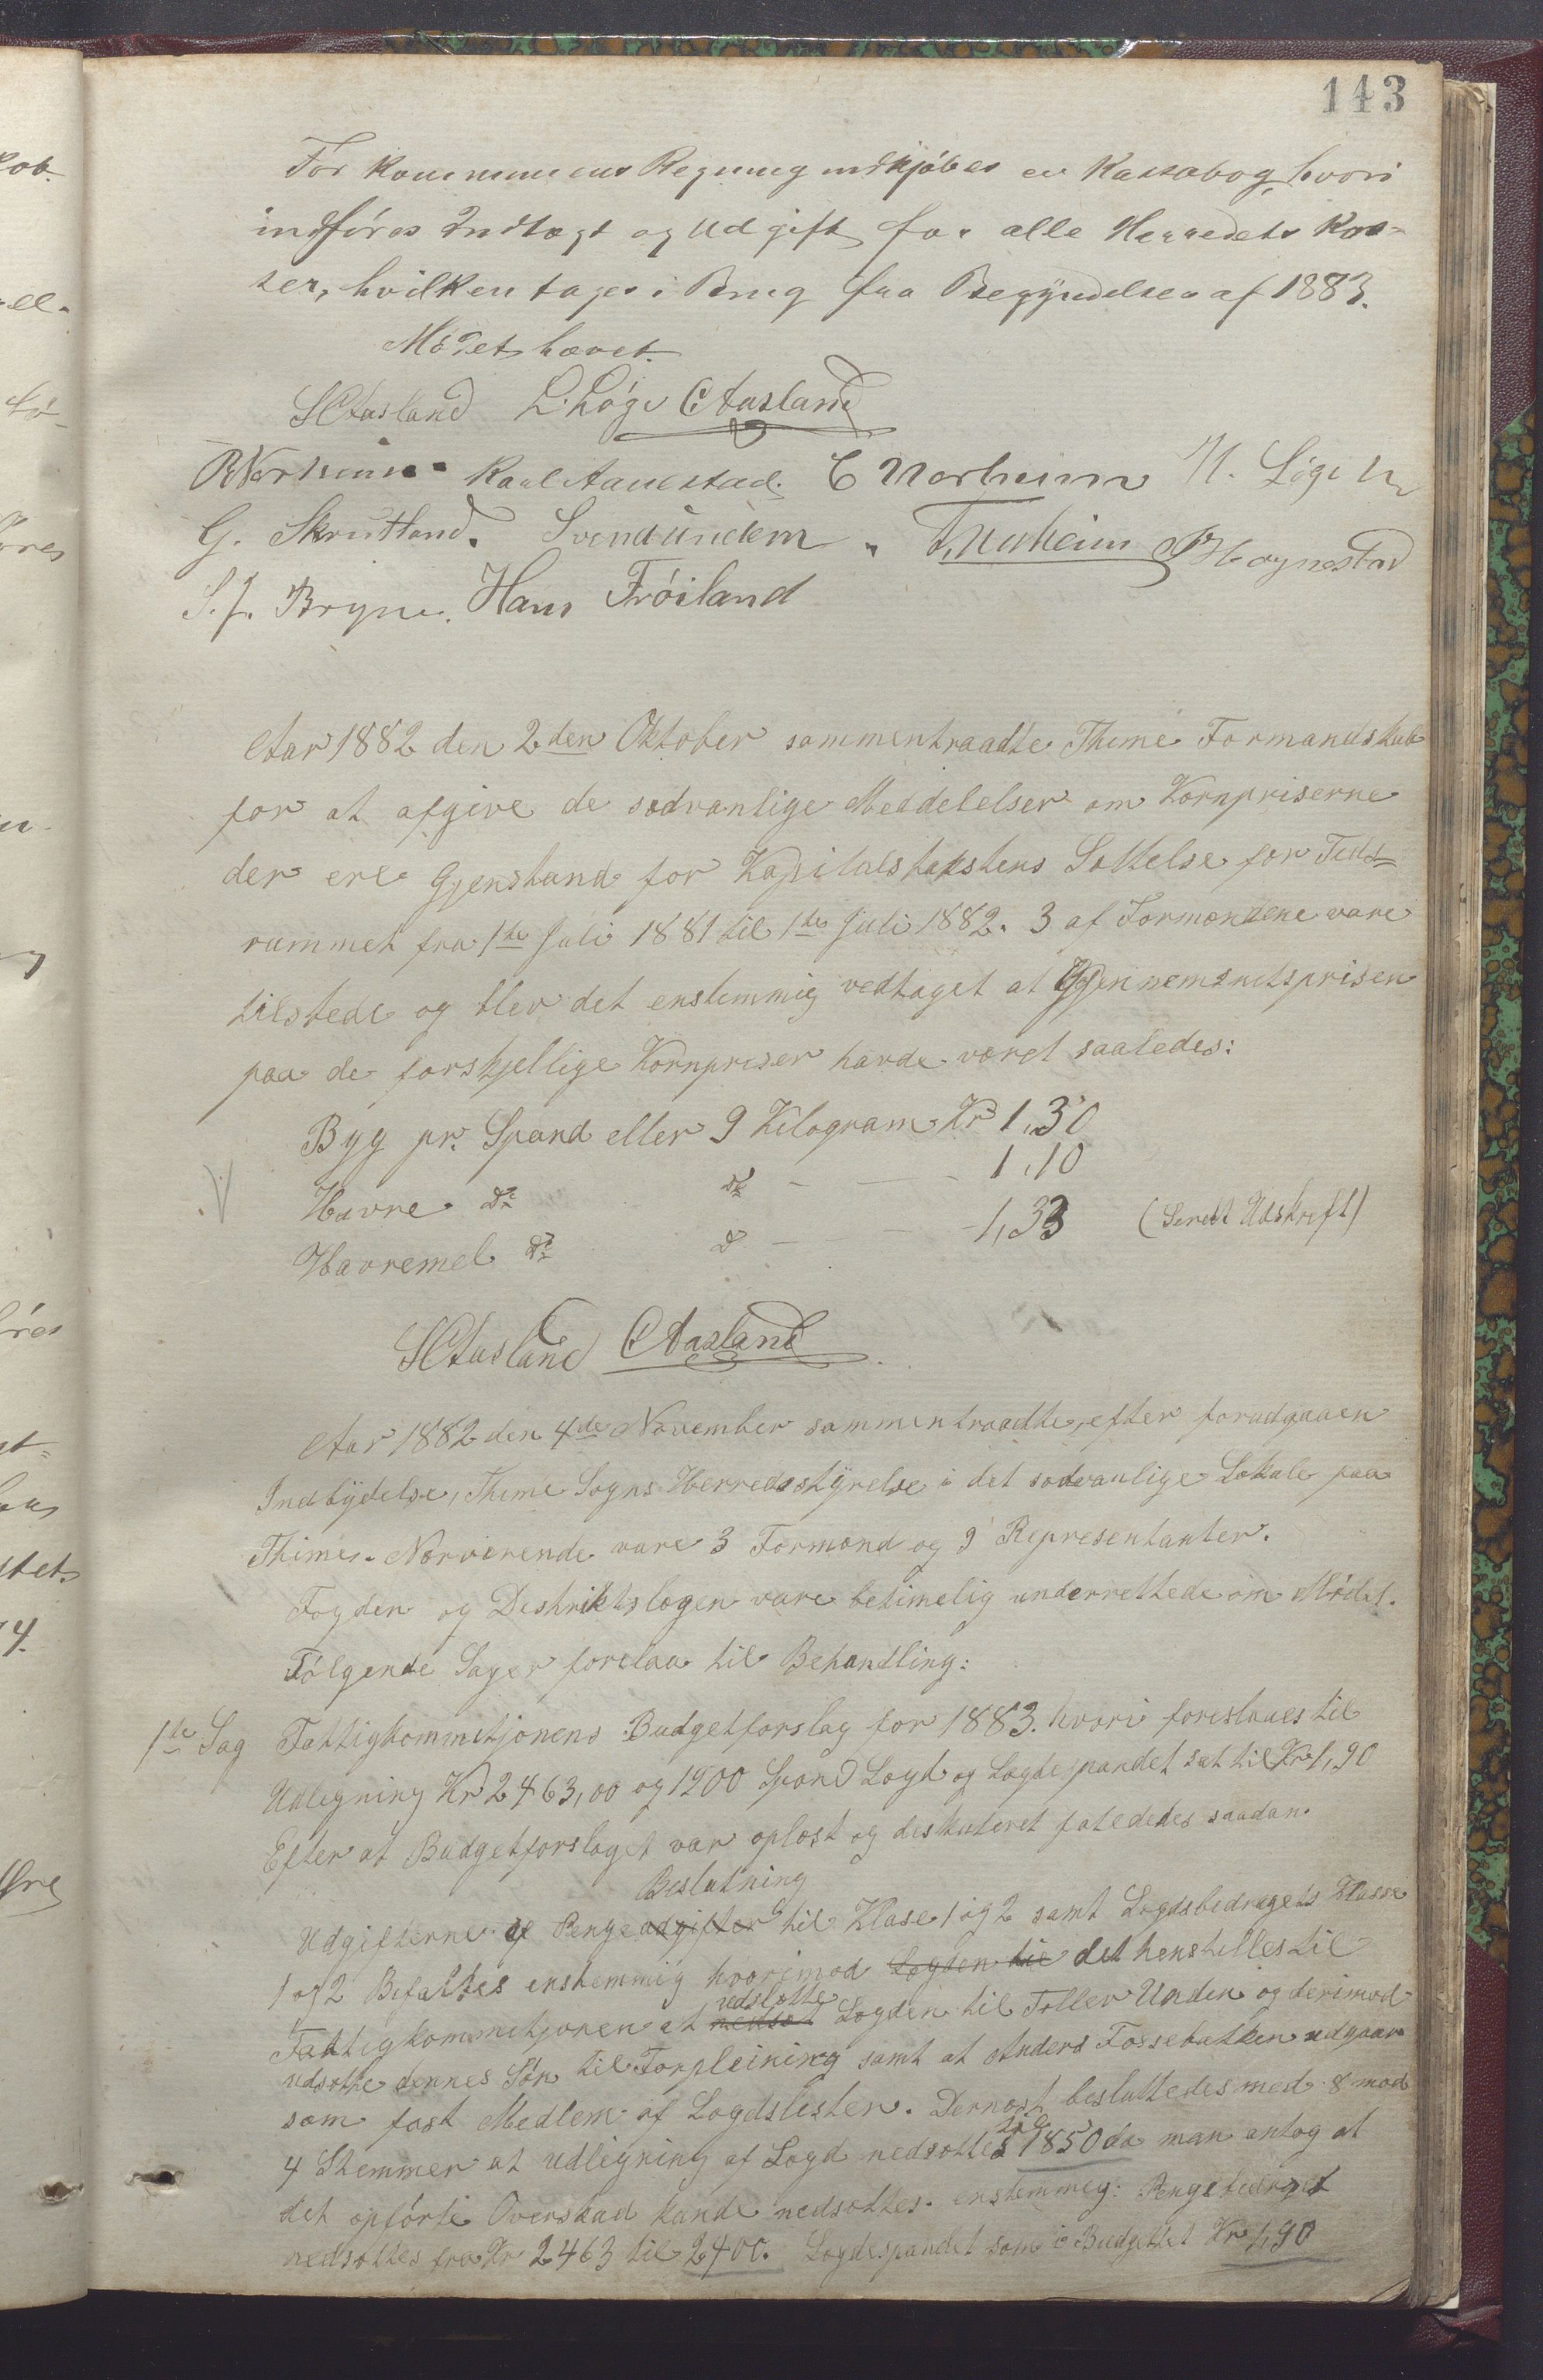 143
For Kommunens Regning indkjøbes en Kassabog, hvori
indføres Indtægt og Udgift for alle Herredets Kas-
ser, hvilken tages i Brug fra Begyndelsen af 1883.
Mødet hævet.
S C Aasland L. Lóge C Aasland
R Norheim Karl Aanestad. E Norheim N. Lóge
G. Skrutland. Svend Undem. T. Norheim P Høgnestad
S. J. Bryne. Hans Fróiland
Aar 1882 den 2den Oktober sammentraadte Thime Formandskab
for at afgive de sædvanlige Meddelelser om Kornpriserne
der ere Gjenstand for Kapitalstakstens Sættelse for Tids=
rummet fra 1ste Juli 1881 til 1ste Juli 1882. 3 af Formændene vare
tilstede og blev det enstemmig vedtaget at Gjennemsnitsprisen
paa de forskjellige Kornpriser havde været saaledes:
Byg pr. Spand eller 9 Kilogram Kr 1,30
Havre do do - — - 1,10
Havremel do do — — 1,33 (Sendt Udskrift)
S C Aasland C Aasland
Aar 1882 den 4de November sammentraadte, efter forudgaaen
Indbydelse, Thime Sogns Herredsstyrelse i det sædvanlige Lokale paa
Thime. Nærværende vare 3 Formænd og 9 Representanter.
Fogden og Destriktslægen vare betimelig underrettede om Mødet.
Følgende Sager forelaa til Behandling:
1ste Sag Fattigkommitjonens Budgetforslag for 1883. hvori foreslaaes til
Udligning Kr 2463,00 og 1900 Spand Lægd og Lægdespandet sat til Kr 1,90
Efter at Budgetforslaget var oplæst og deskuteret fatedes saadan
Beslutning
Udgifterne af Pengeudgifter til Klase 1 og 2 samt Lægdsbedragets Klasse
1 og 2 Bifaltes enstemmig hvorimod Lægden til det henstilles til
Fattigkommitjonen at nedsæt vedslotte Lægden til Toller Unden og derimod
udsætte dennes Søn til Forpleining samt at Anders Fossebakken udgaar
som fast Medlem af Lægdslisten. Dernæst besluttedes med 8 mod
4 Stemmer at udligning af Lægd nedsættes til 1850 da man antog at
det opførte Overskud kande nedsættes. enstemmig: Pengebedraget
nedsættes fra Kr 2463 til 2400. Lægdespandet som i Budgettet Kr 1,90